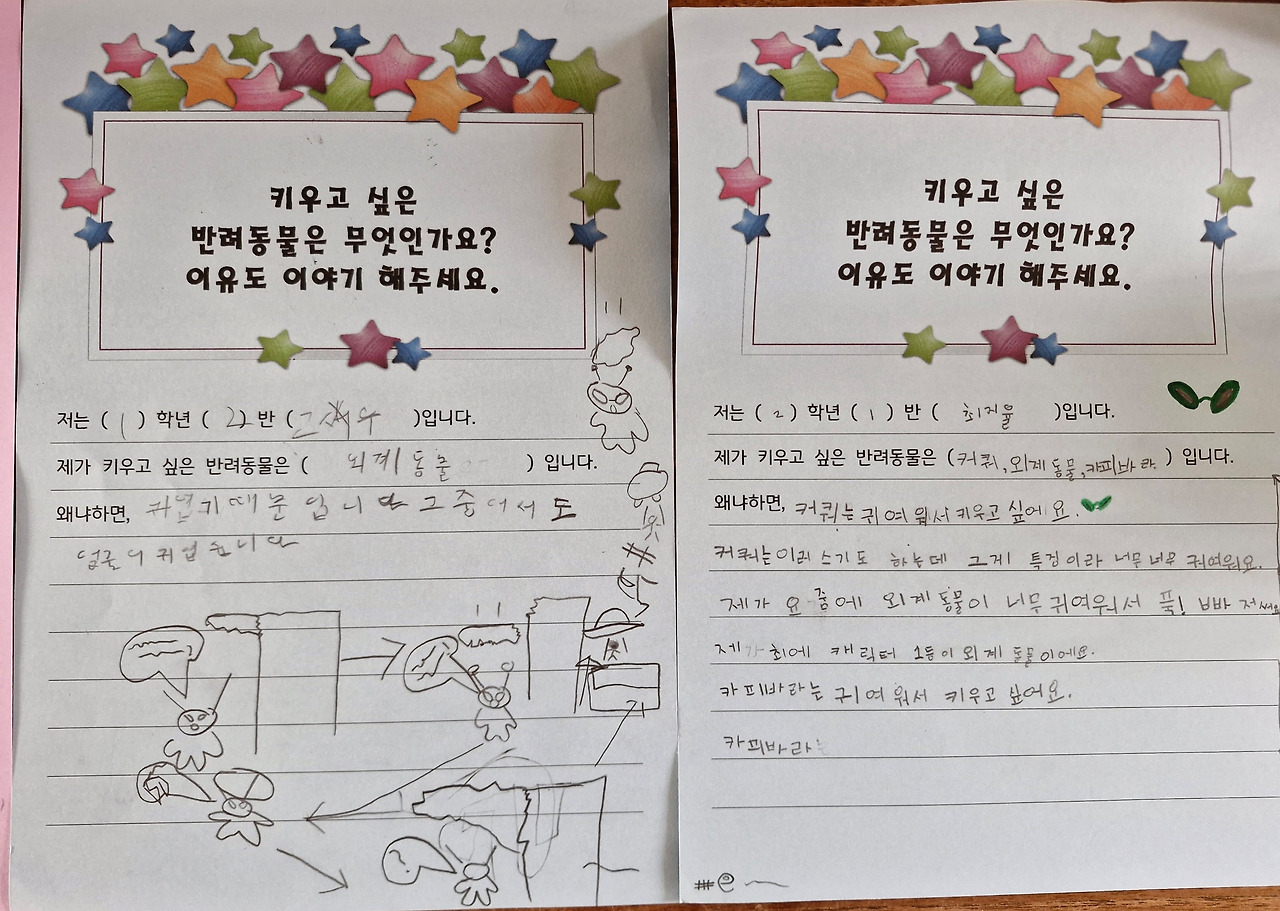 키우고 싶은
반려동물은 무엇인가요?
이유도 이야기 해주세요.
저는 ( 1 ) 학년 ( 2 ) 반 ( )입니다.
제가 키우고 싶은 반려동물은 ( 외계동물 ) 입니다.
왜냐하면, 귀엽기때문입니다 그중에서도
얼굴이 귀엽습니다
키우고 싶은
반려동물은 무엇인가요?
이유도 이야기 해주세요.
저는 ( 2 ) 학년 ( 1 ) 반 ( 최지율 )입니다.
제가 키우고 싶은 반려동물은 (커쿼, 외계동물, 카피바라 ) 입니다.
왜냐하면, 커쿼는 귀여워서 키우고 싶어요.
커쿼는 스기도 하는데 그게 특징이라 너무너무 귀여워요.
제가 요줌에 외계동물이 너무 귀여워서 푹! 빠
제 최에 캐릭터 1등이 외계동물이에요.
카피바라는 귀여워서 키우고 싶어요.
카피바라는